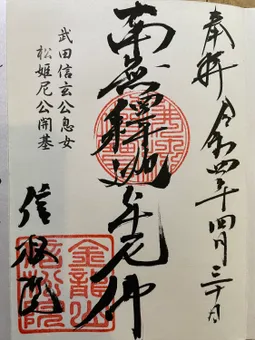 奉拝 令和四年四月三十日
南無釋迦牟尼佛
武田信玄公息女
松姫尼公開基
信松院
金龍山
信松院